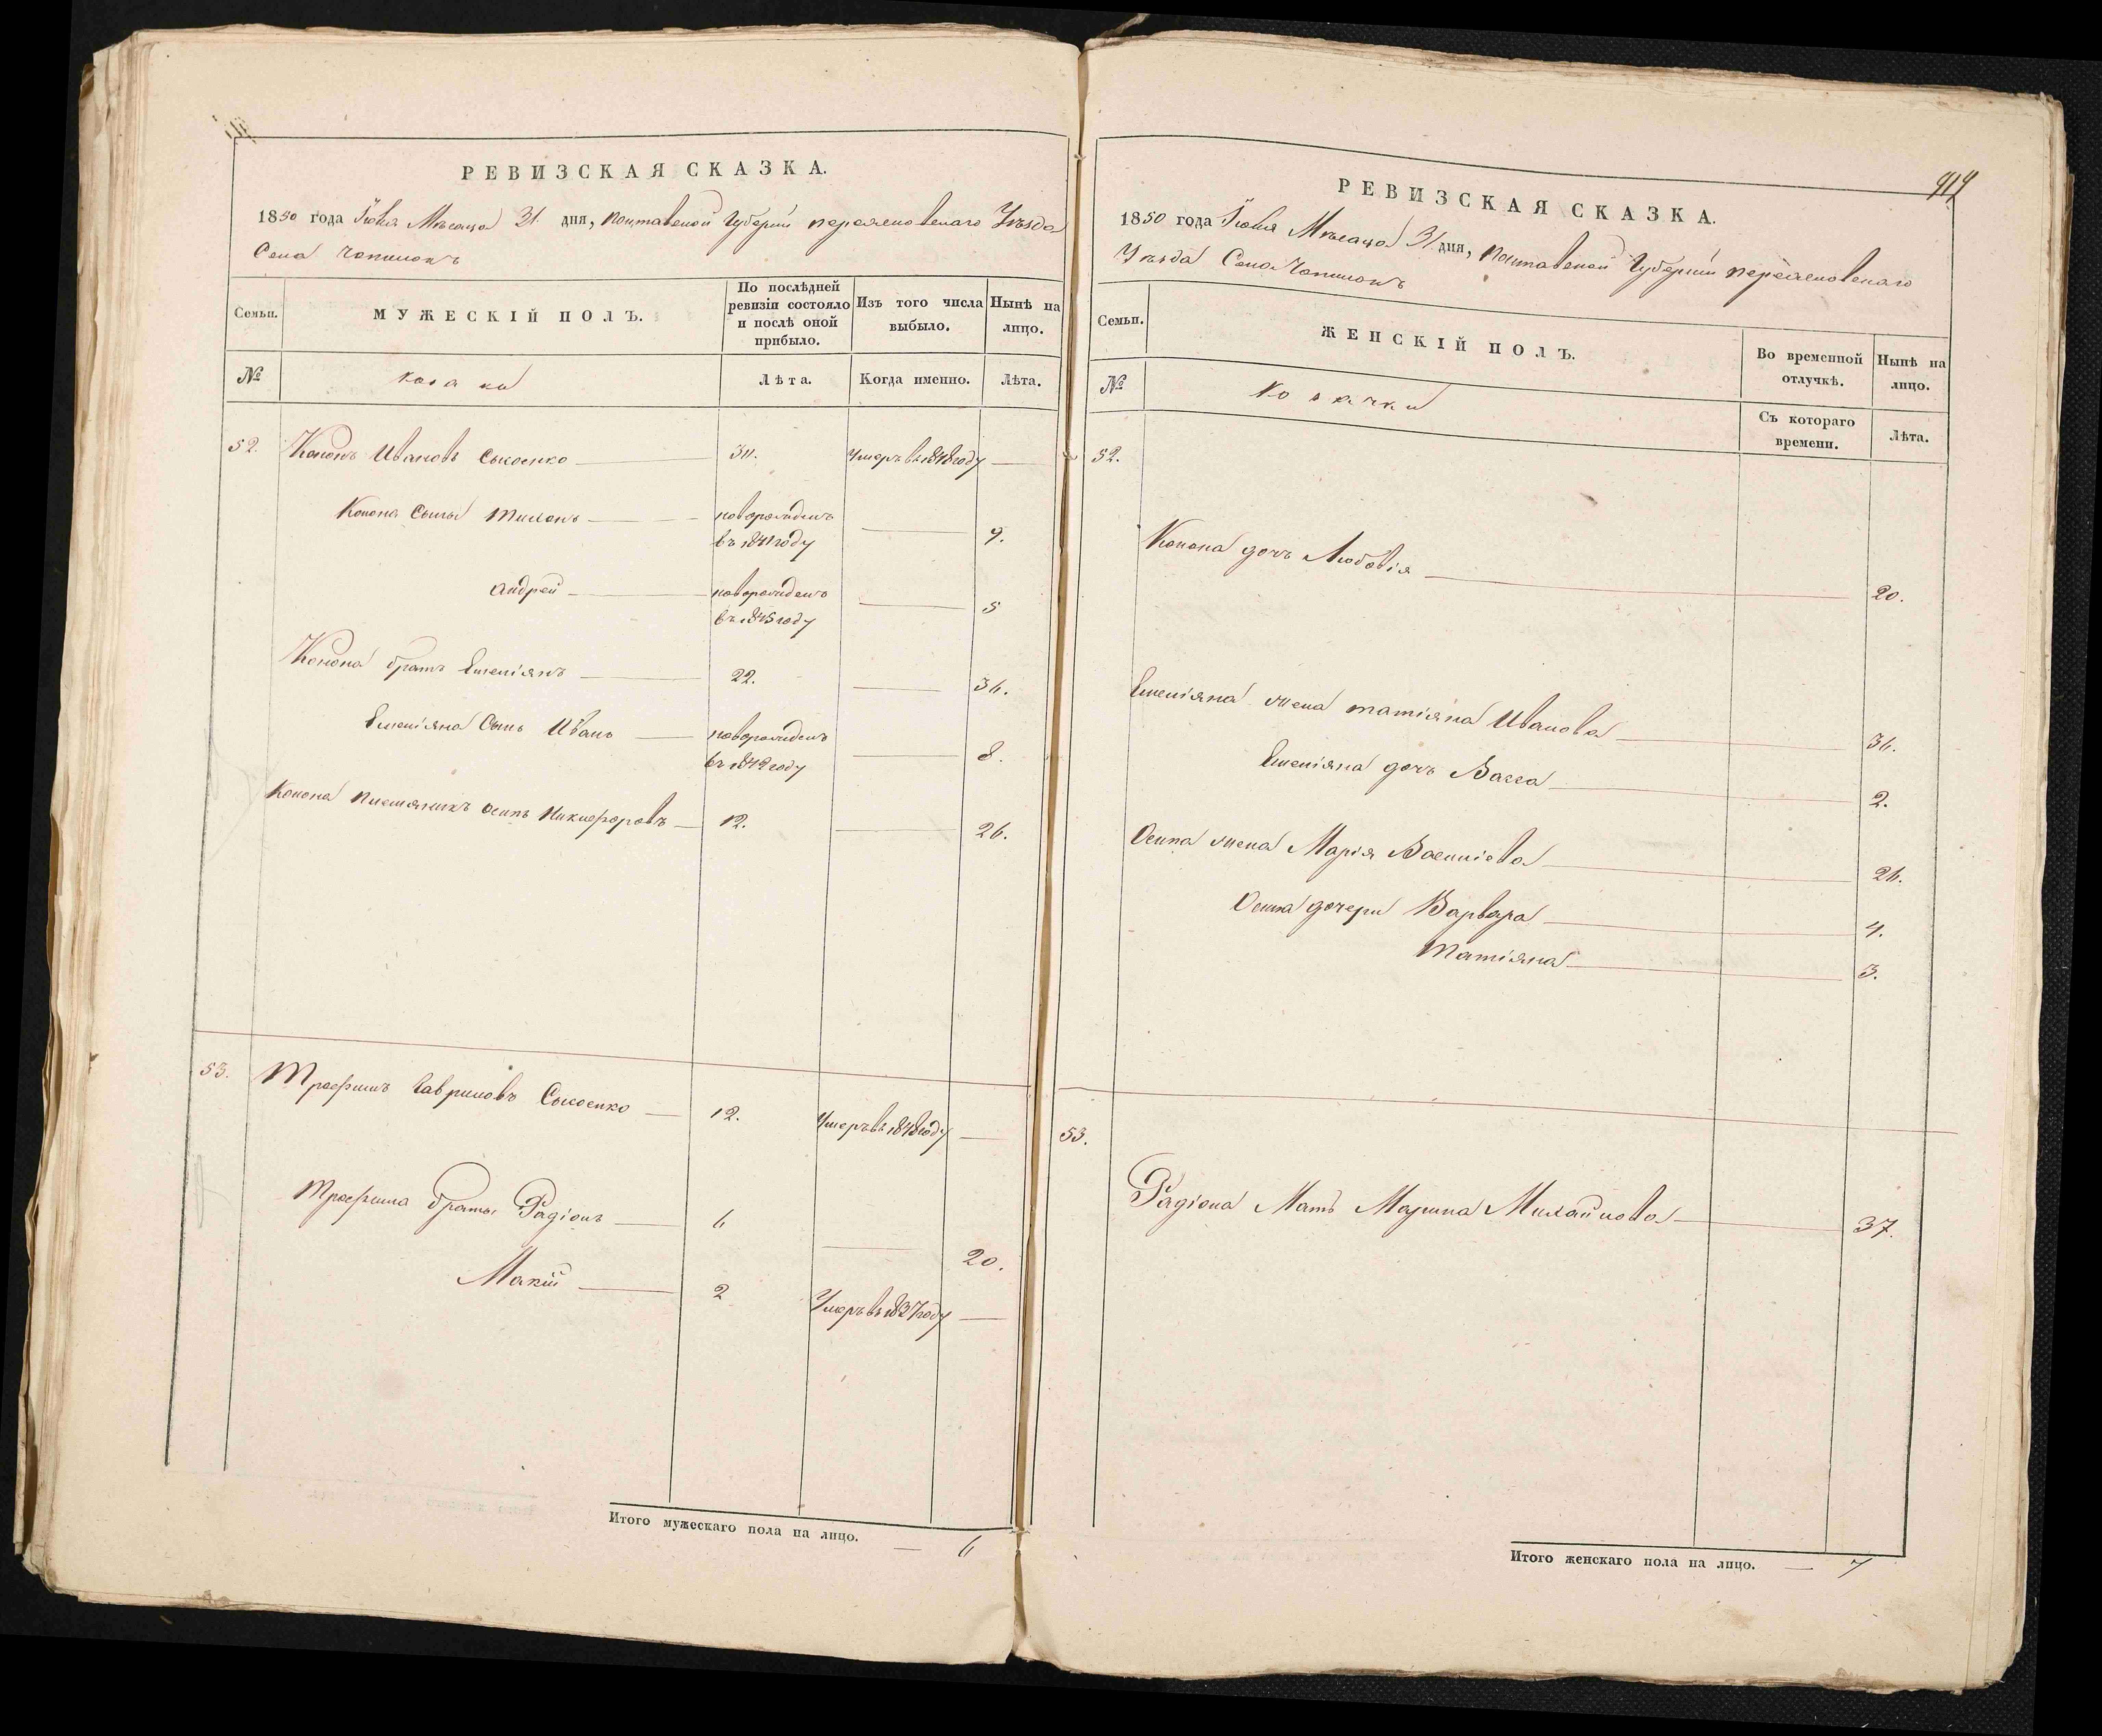 РЕВИЗСКАЯ СКАЗКА.
1850 года Июля Месяца 31 дня, Полтавской Губерніи Переяславскаго Уезда
Села
Семьи.
МУЖЕСКІЙ ПОЛЪ.
По послѣдней ревизіи состояло и послѣ оной прибыло.
Изъ того числа выбыло.
Нынѣ на лицо.
№
козаки
Лѣта.
Когда именно.
Лѣта.
52. Кононъ Ивановъ 30. Умеръ въ 1848 году
Конона Сыны новорожденъ
въ 1841 году 9.
Андрей новорожденъ 5
въ 1845 году
Конона братъ Емеліянъ 22. 36.
Емеліяна Сынъ Иванъ новорожденъ 8.
въ 1842 году
Конона племяникъ Осипъ Никифоровъ 12. 26.
53. Трофимъ Гавриловъ 12. Умеръ въ 1848 году
Трофима братья Радіонъ 6 20.
2 Умеръ въ 1837 году
Итого мужескаго пола на лицо. 6
РЕВИЗСКАЯ СКАЗКА.
1850 года Июля Месяца 31 дня, Полтавской Губерніи Переяславскаго
Уезда Села
Семьи.
ЖЕНСКІЙ ПОЛЪ.
Во временной отлучкѣ.
Нынѣ на лицо.
№
козачки
Съ котораго времени.
Лѣта.
52.
Конона дочь 20.
Емеліяна жена Татіяна Иванова 36.
Емеліяна дочь Васса 2.
Осипа жена Марія Василіева 26.
Осипа дочери Варвара 4.
Татіяна 3.
53.
Радіона Мать Марина Михайлова 37.
Итого женскаго пола на лицо. 7